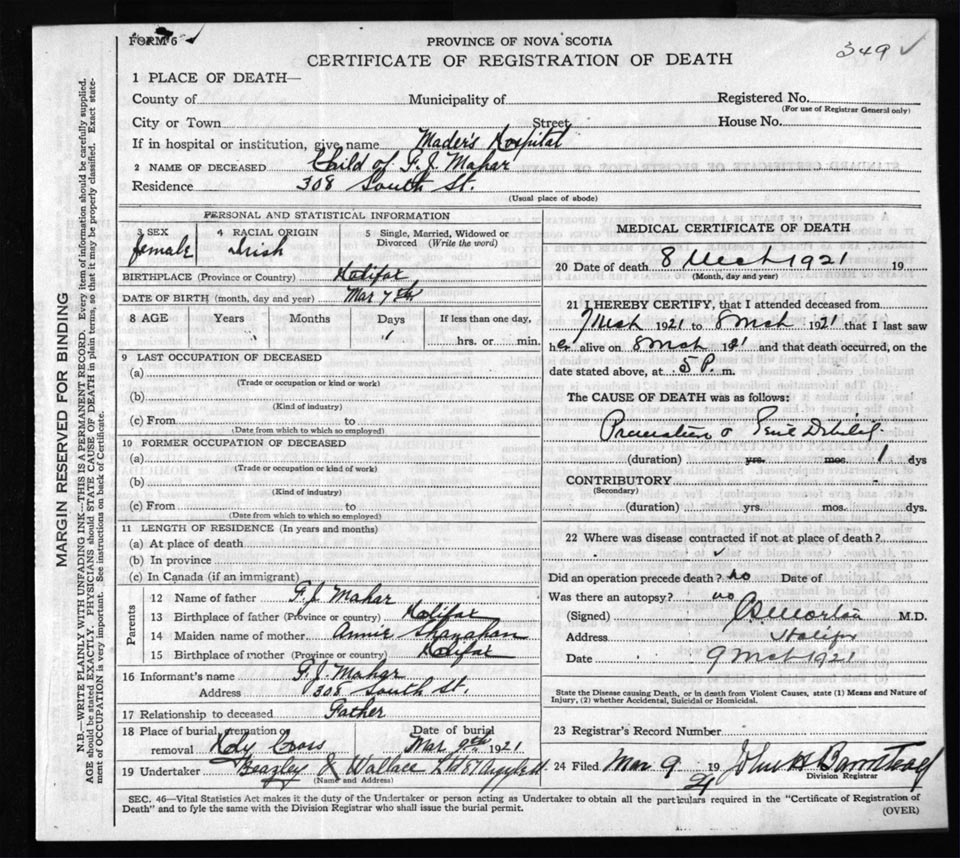 FORM 6
PROVINCE OF NOVA SCOTIA
349 ✓
CERTIFICATE OF REGISTRATION OF DEATH
1 PLACE OF DEATH—
County of Municipality of Registered No.
(For use of Registrar General only)
City or Town Street House No.
If in hospital or institution, give name Mader's Hospital
2 NAME OF DECEASED Child of F. J. Mahar
Residence 308 South St.
(Usual place of abode)
PERSONAL AND STATISTICAL INFORMATION
3 SEX 4 RACIAL ORIGIN 5 Single, Married, Widowed or Divorced (Write the word)
female Irish
BIRTHPLACE (Province or Country) Halifax
DATE OF BIRTH (month, day and year) Mar 7th
8 AGE Years Months Days If less than one day,
1 hrs. or min.
9 LAST OCCUPATION OF DECEASED
(a)
(Trade or occupation or kind or work)
(b)
(Kind of industry)
(c) From to
(Date from which to which so employed)
10 FORMER OCCUPATION OF DECEASED
(a)
(Trade or occupation or kind of work)
(b)
(Kind of industry)
(c) From to
(Date from which to which so employed)
11 LENGTH OF RESIDENCE (In years and months)
(a) At place of death
(b) In province
(c) In Canada (if an immigrant)
Parents
12 Name of father F. J. Mahar
13 Birthplace of father (Province or country) Halifax
14 Maiden name of mother Annie Shanahan
15 Birthplace of mother (Province or Country) Halifax
16 Informant's name F. J. Mahar
Address 308 South St.
17 Relationship to deceased Father
18 Place of burial, cremation Date of burial
removal Holy Cross Mar 9th 1921
19 Undertaker Beazley & Wallace Ltd 87 Argyle St
(Name and Address)
MEDICAL CERTIFICATE OF DEATH
20 Date of death 8 Mch 1921 19
(Month, day and year)
21 I HEREBY CERTIFY, that I attended deceased from
7 Mch 1921 to 8 Mch 1921 that I last saw
her alive on 8 Mch 1921 and that death occurred, on the
date stated above, at 5 P. m.
The CAUSE OF DEATH was as follows:
(duration) yrs. mos. 1 dys
CONTRIBUTORY
(Secondary)
(duration) yrs. mos. dys.
22 Where was disease contracted if not at place of death?
✓
Did an operation precede death? no Date of
Was there an autopsy? no
(Signed) M.D.
Address Halifax
Date 9 Mch 1921
State the Disease causing Death, or in death from Violent Causes, state (1) Means and Nature of
Injury, (2) whether Accidental, Suicidal or Homicidal.
23 Registrar's Record Number
24 Filed Mar 9 19 21
Division Registrar
SEC. 46—Vital Statistics Act makes it the duty of the Undertaker or person acting as Undertaker to obtain all the particulars required in the "Certificate of Registration of
Death" and to fyle the same with the Division Registrar who shall issue the burial permit.
(OVER)
MARGIN RESERVED FOR BINDING
N.B.—WRITE PLAINLY WITH UNFADING INK—THIS IS A PERMANENT RECORD. Every item of information should be carefully supplied.
AGE should be stated EXACTLY. PHYSICIANS should STATE CAUSE OF DEATH in plain terms, so that it may be properly classified. Exact state-
ment of OCCUPATION is very important. See instructions on back of Certificate.